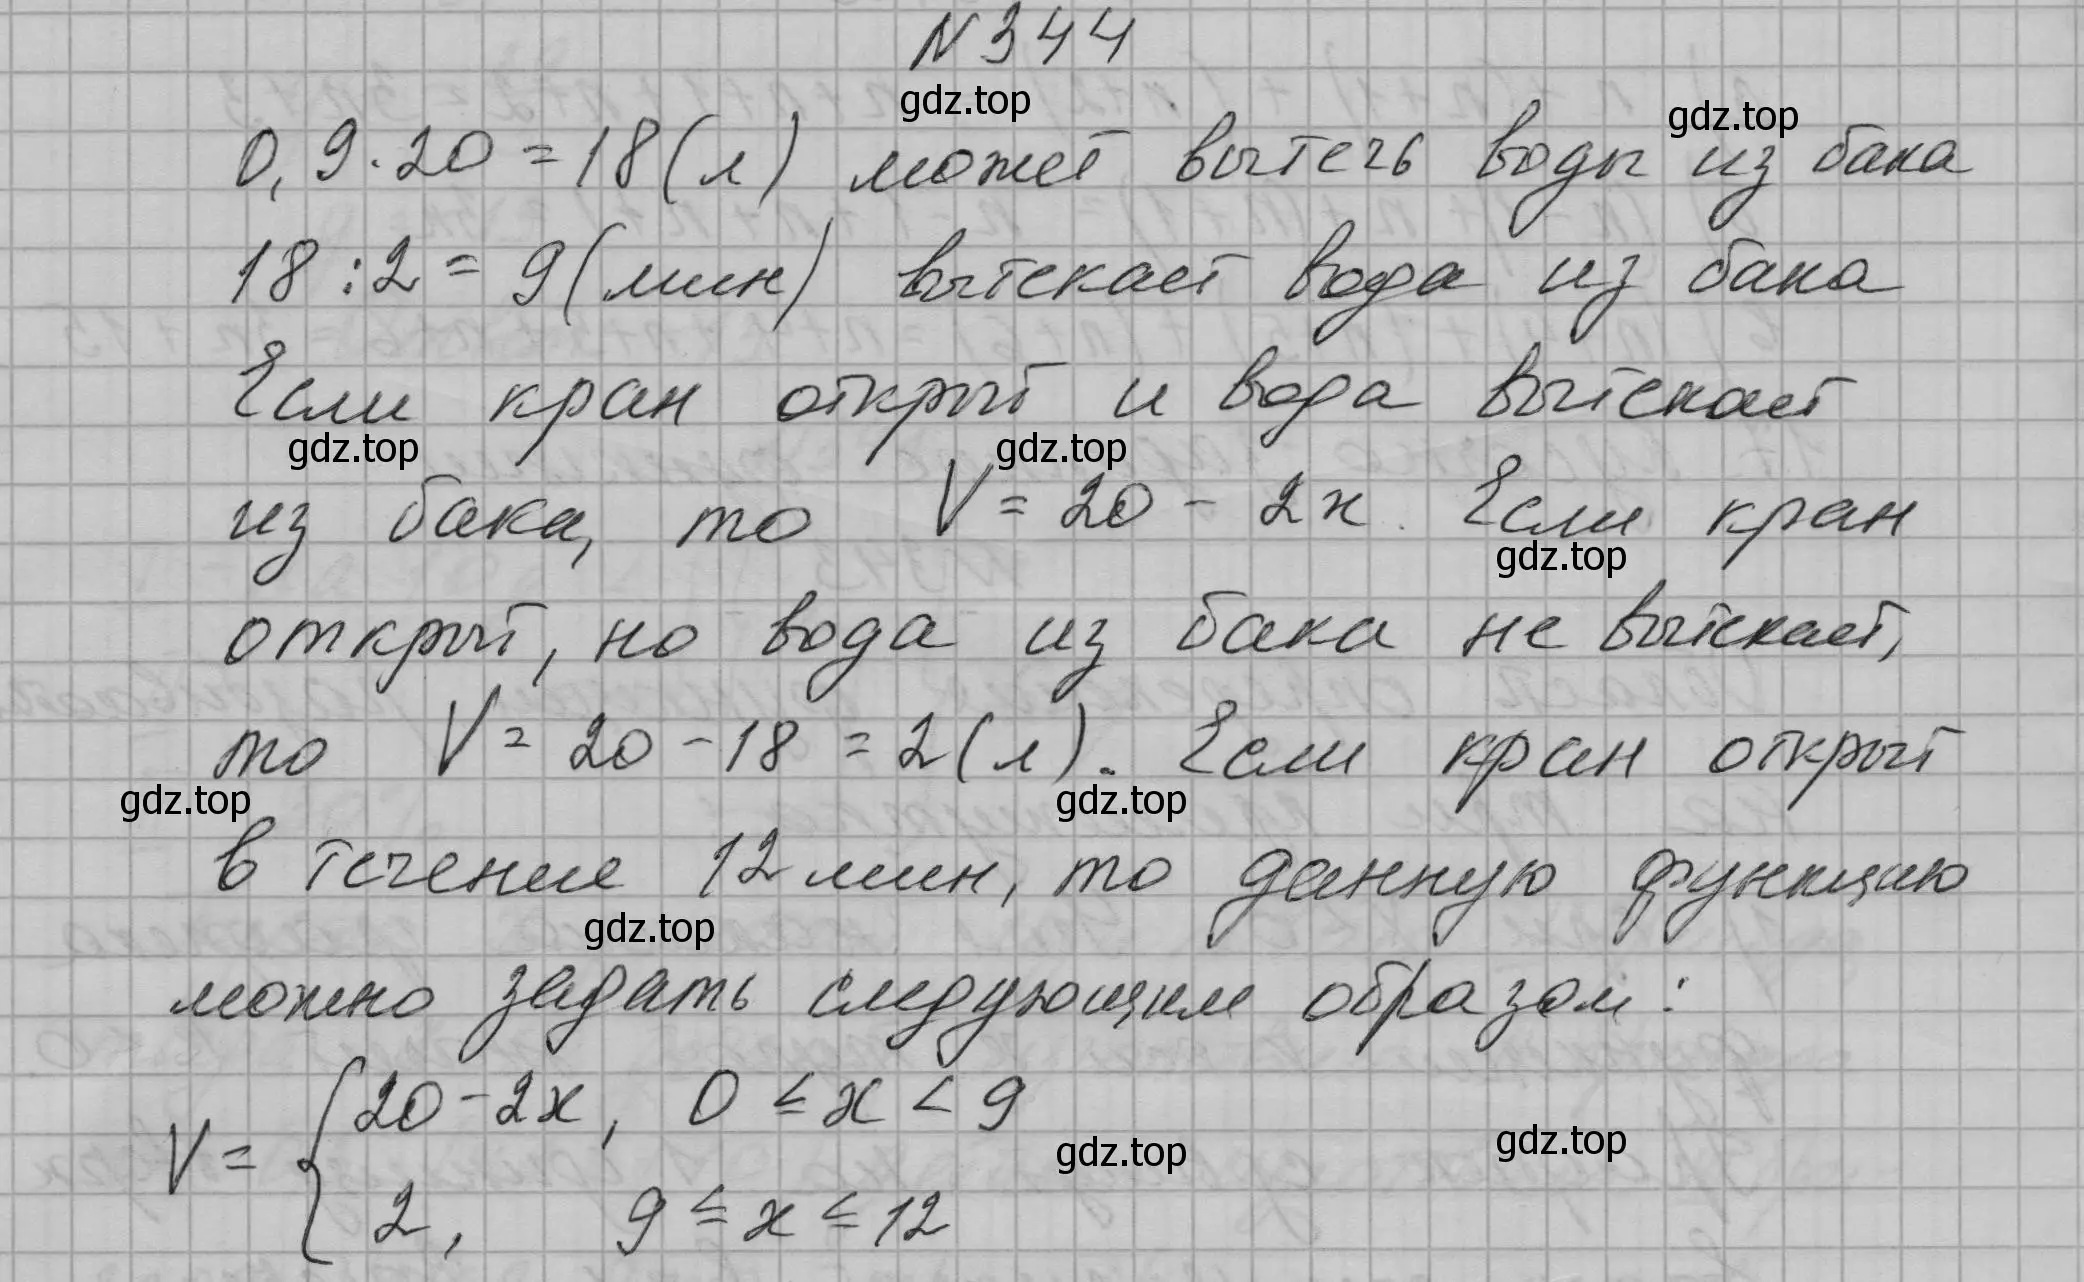 N 344
gdz.top
gdz.top
0,9·20=18(л) может вытечь воды из бака
18:2=9(мин) вытекает вода из бака
Если кран открыт и вода вытекает
gdz.top
gdz.top
из бака, то V=20-2x. Если кран
gdz.top
открыт, но вода из бака не вытекает,
то V=20-18=2(л). Если кран открыт
gdz.top
gdz.top
в течение 12 мин, то данную функцию
gdz.top
можно задать следующим образом:
V= { 20-2x, 0≤x<9
gdz.top
gdz.top
2, 9≤x≤12